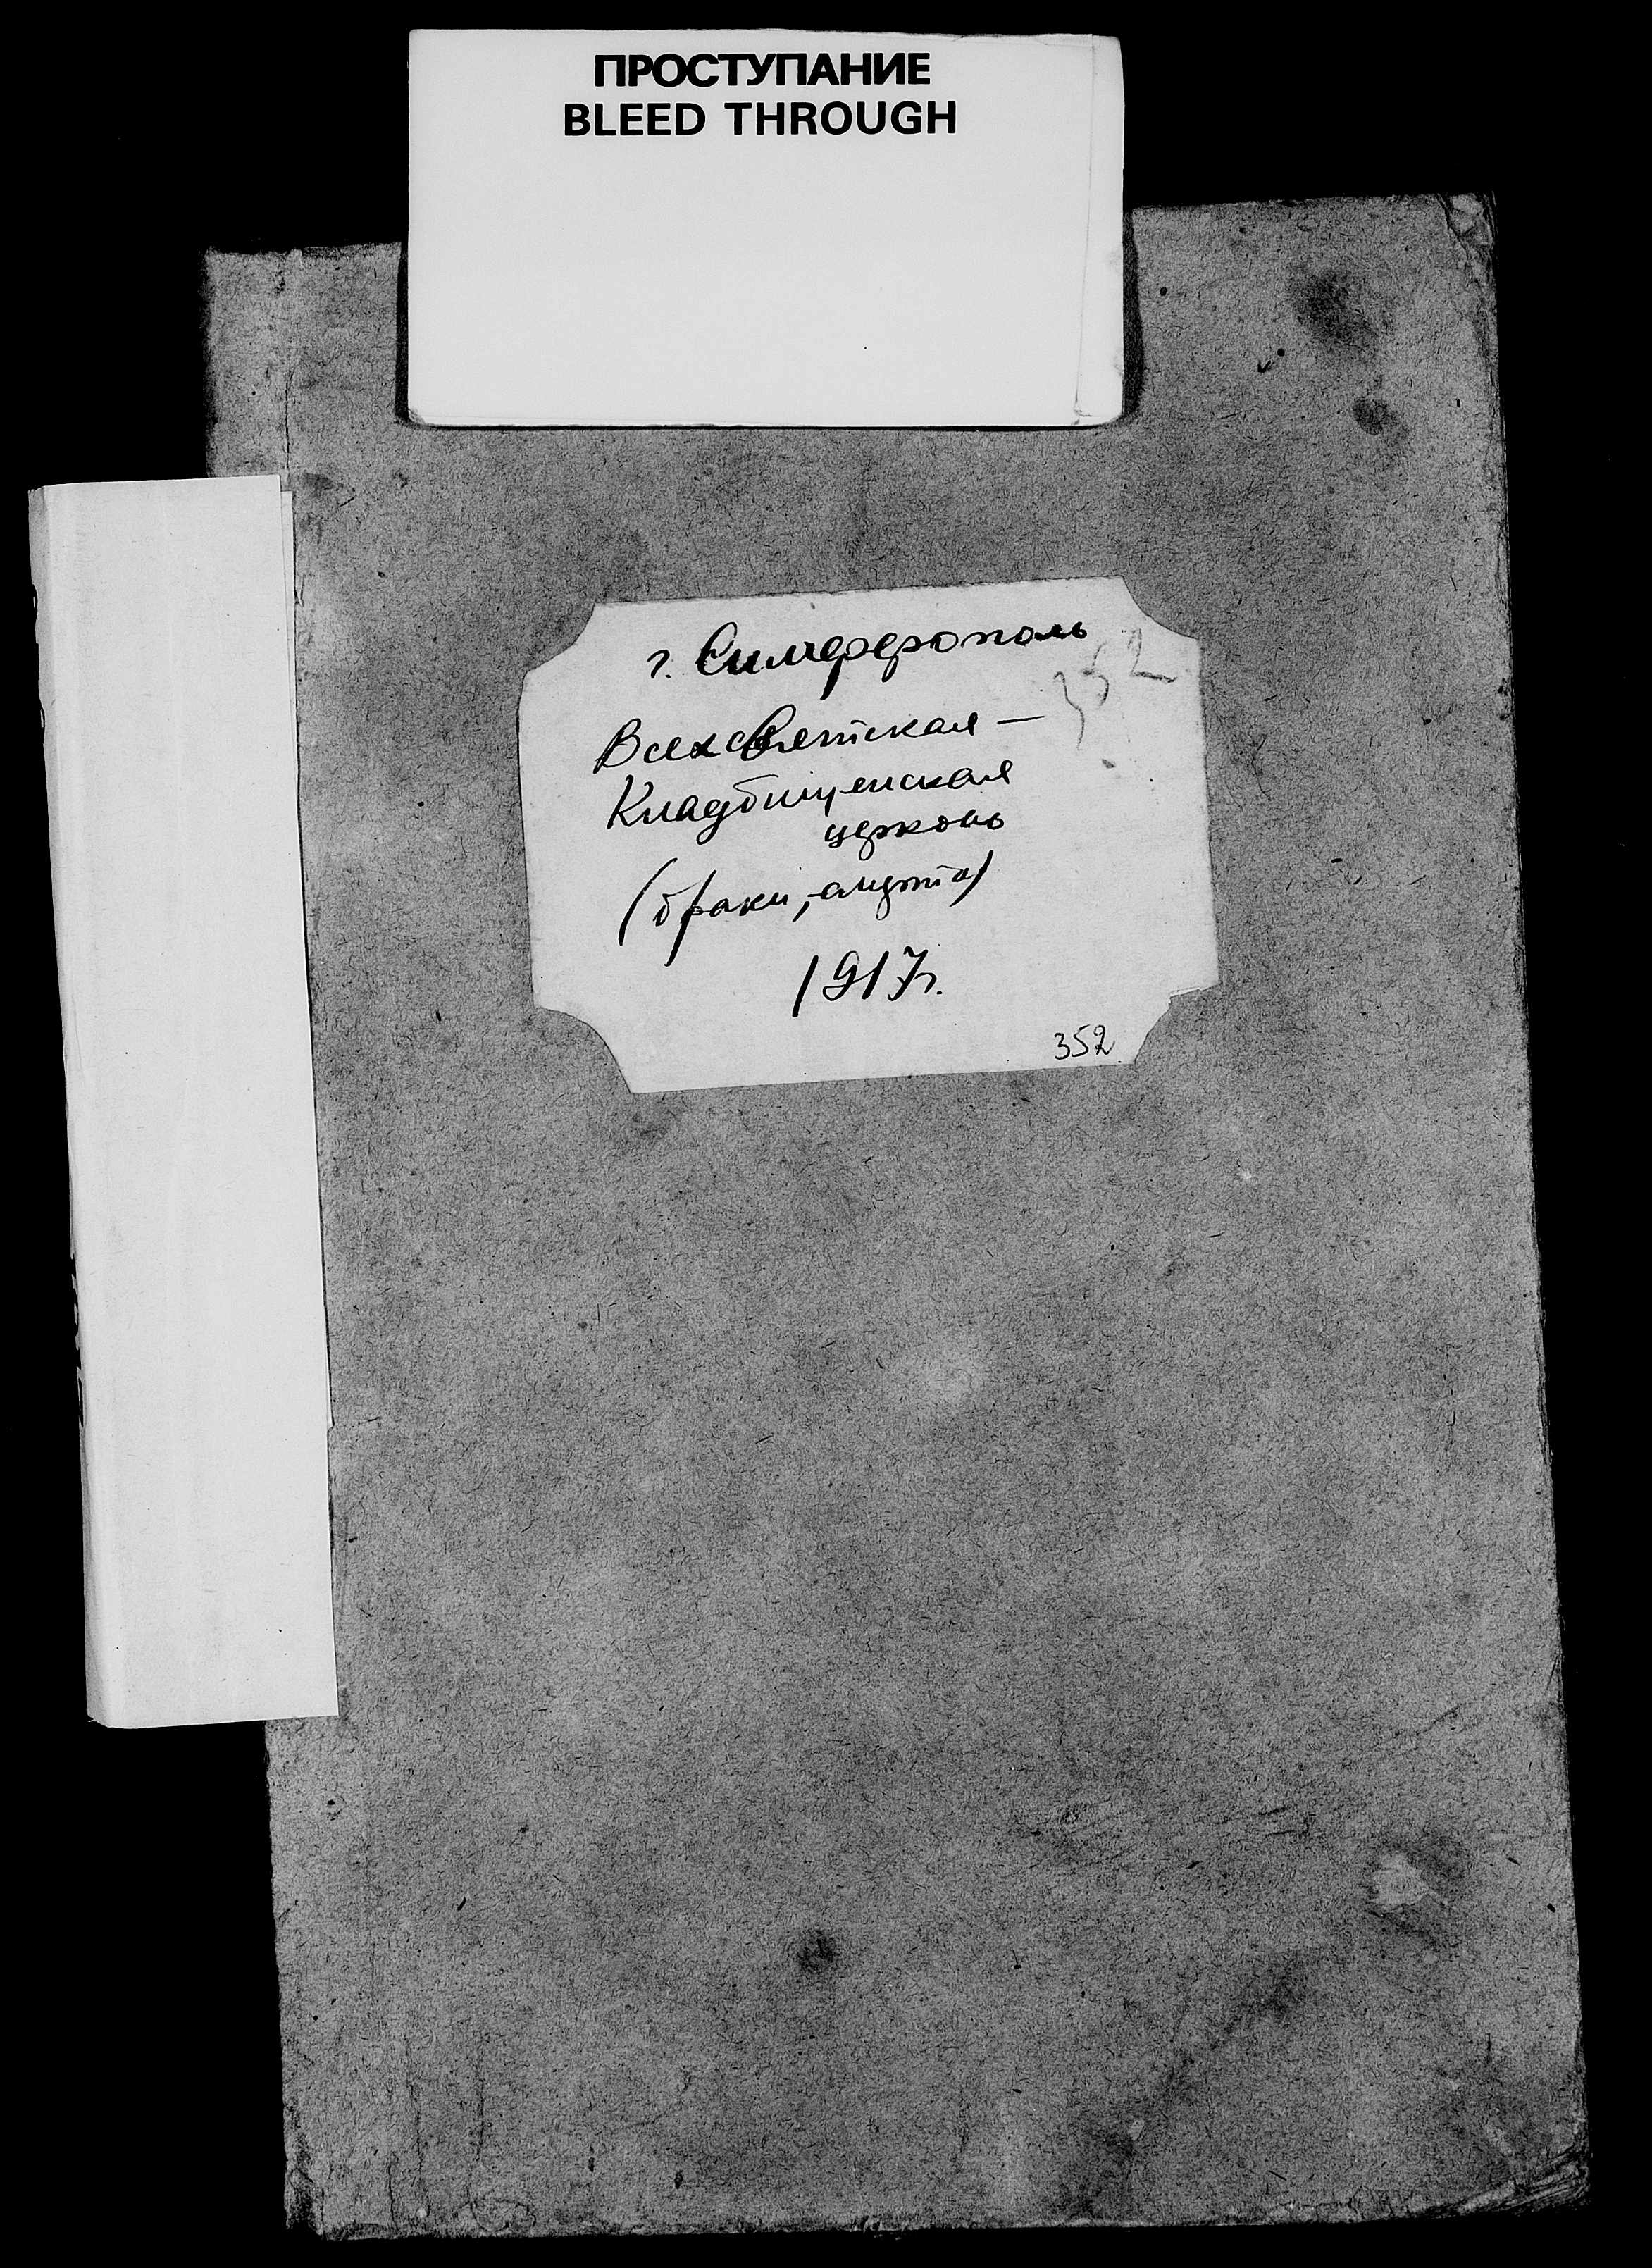 ПРОСТУПАНИЕ
BLEED THROUGH
г. Симферополь
352
Всехсвятская —
Кладбищенская
церковь
(браки, смерть)
1917г.
352